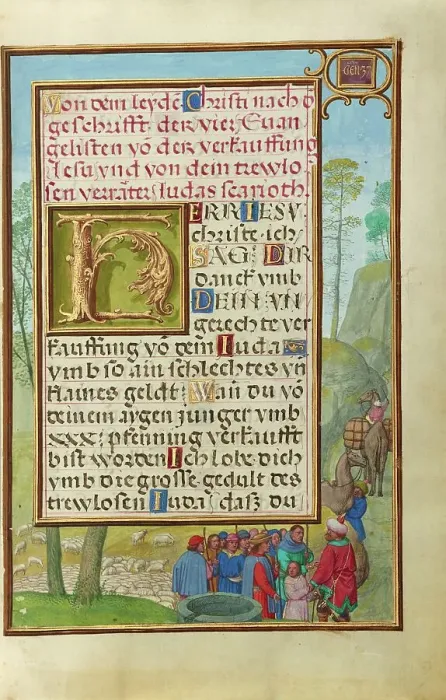 GEN 37
Von dem leydē Christi nach d
geschrifft der vier Euan
gelisten vō der verkauffung
Jesu vnd von dem trewlo
sen verräter Judas scarioth.
HERR IESV
christe ich
SAG DIR
danck vmb
DEIN VN
gerechte ver
kauffung vō dem Iuda
vmb so ain schlechtes vn̄
klaines geldt: Wan du vō
deinem argen junger vmb
xxx: pfenning verkaufft
bist worden Ich lobe dich
vmb die grosse gedult des
trewlosen Iuda: dasz du